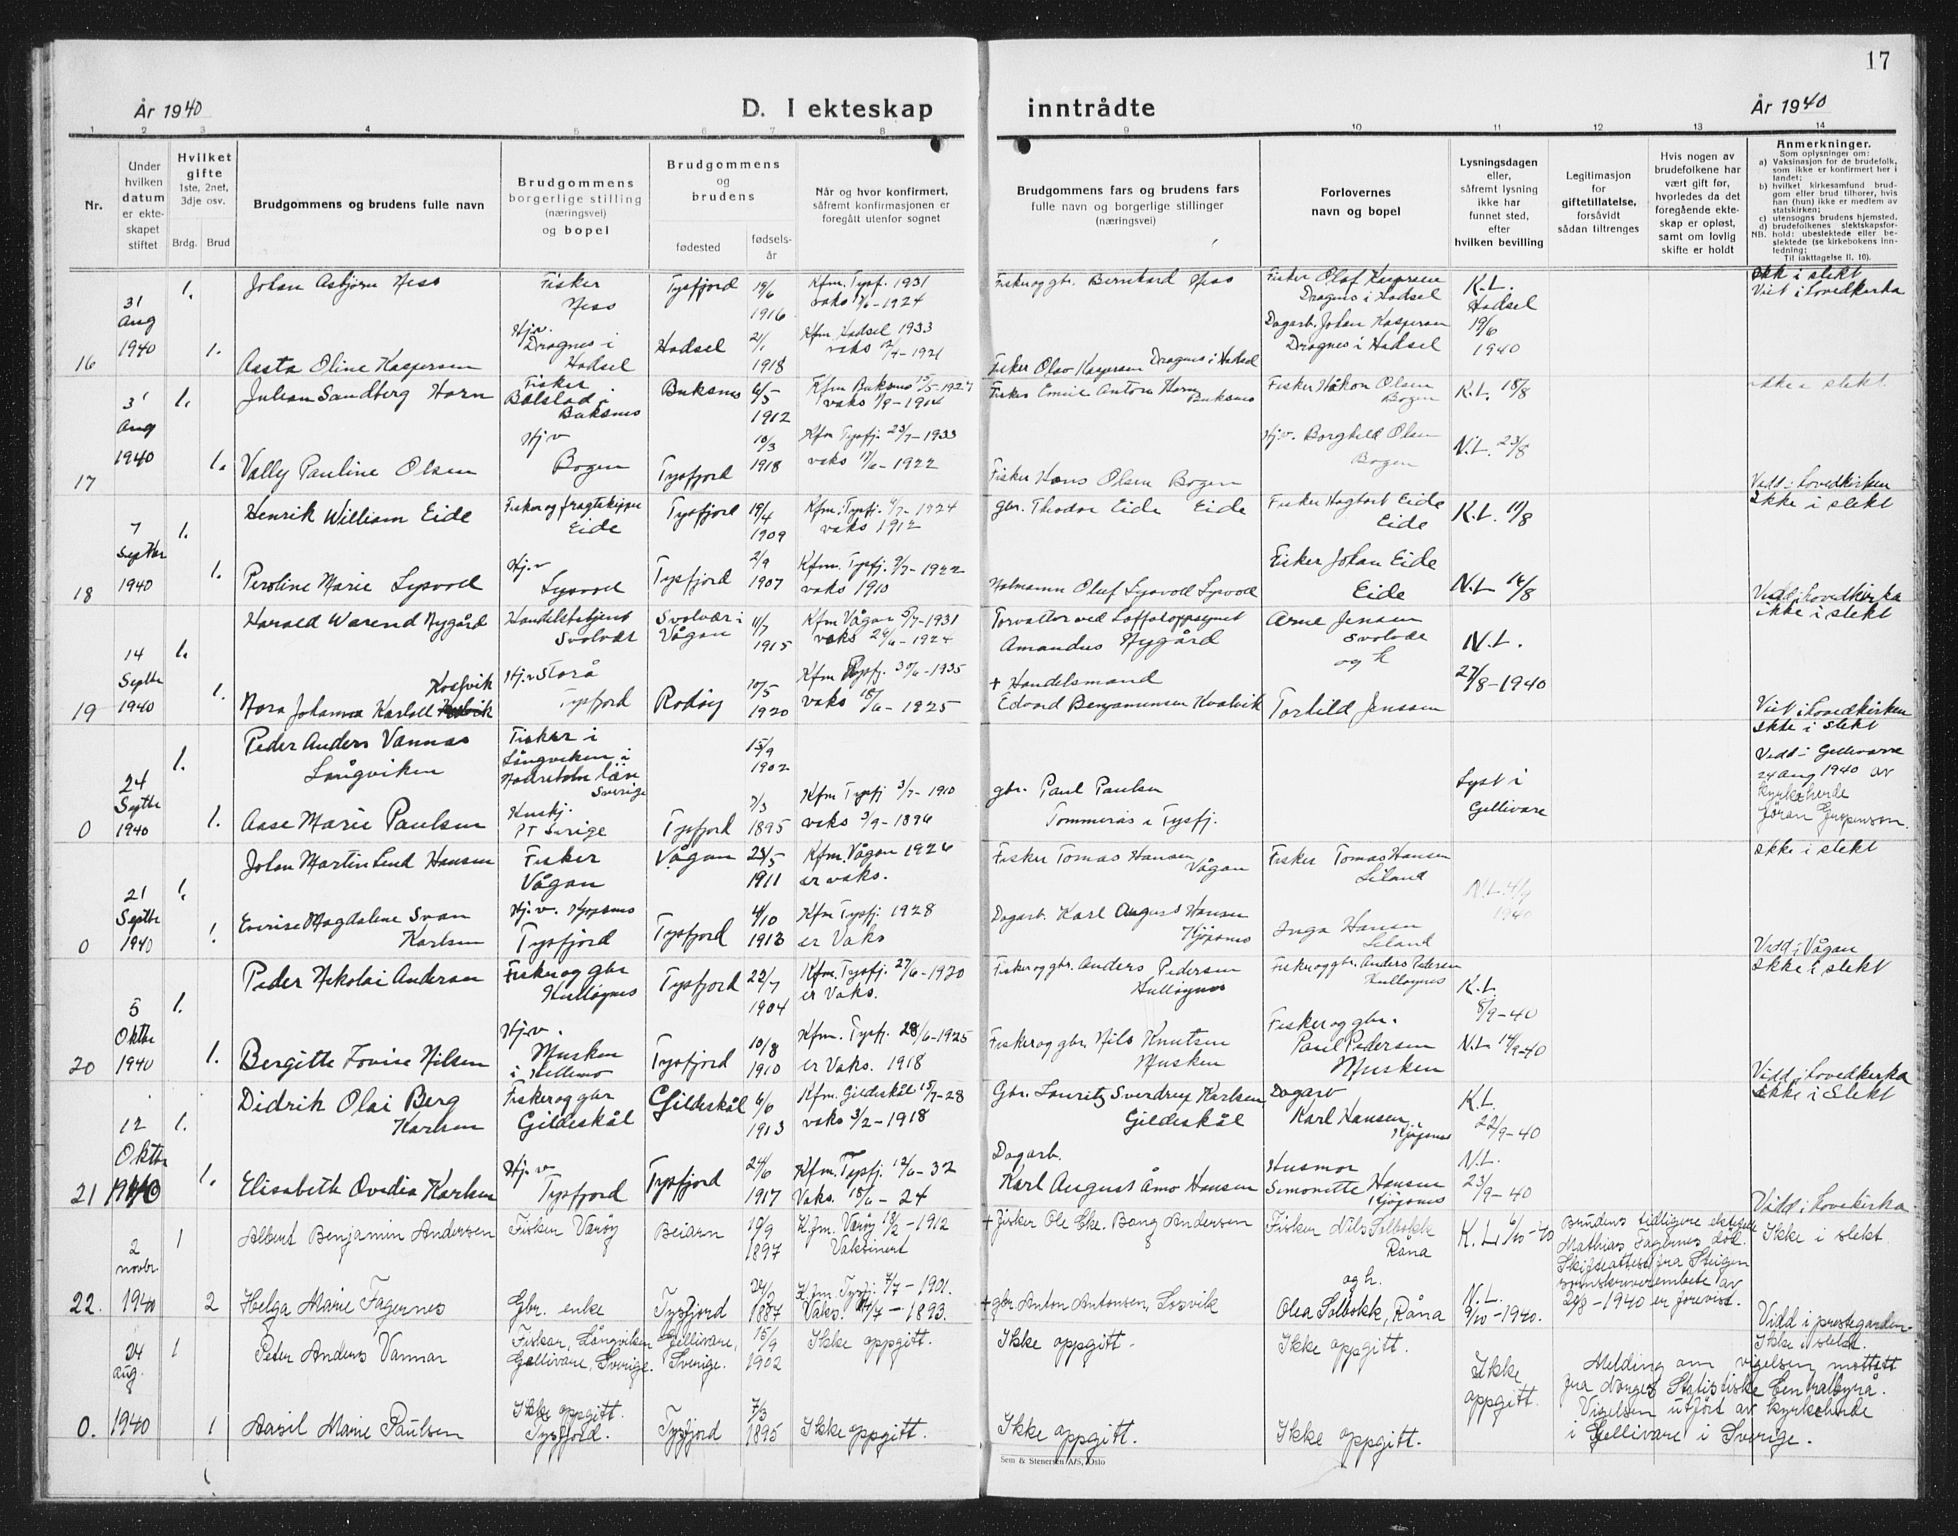 17
År 1940
D. I ekteskap
inntrådte
År 1940
1 2 3 4 5 6 7 8 9 10 11 12 13 14
Nr.
Under hvilken datum er ekteskapet stiftet
Hvilket gifte 1ste, 2net, 3dje osv.
Brdg. Brud
Brudgommens og brudens fulle navn
Brudgommens borgerlige stilling (næringsvei) og bopel
Brudgommens og brudens
fødested
fødselsår
Når og hvor konfirmert, såfremt konfirmasjonen er foregått utenfor sognet
Brudgommens fars og brudens fars fulle navn og borgerlige stillinger (næringsvei)
Forlovernes navn og bopel
Lysningsdagen eller, såfremt lysning ikke har funnet sted, efter hvilken bevilling
Legitimasjon for giftetillatelse, forsåvidt sådan tiltrenges
Hvis nogen av brudefolkene har vært gift før, hvorledes da det foregående ekteskap er opløst, samt om lovlig skifte er holdt
Anmerkninger.
Som oplysninger om:
a) Vaksinasjon for de brudefolk, som ikke er konfirmert her i landet;
b) hvilket kirkesamfund brudgom eller brud tilhører, hvis han (hun) ikke er medlem av statskirken;
c) utensogns brudens hjemsted,
d) brudefolkenes slektskapsforhold: ubeslektede eller beslektede (se kirkebokens innledning;
NB. Til iakttagelse II, 10).
16
31 Aug 1940
1. Johan Asbjørn Ness
Fisker Ness
Tysfjord 19/6 1916
Kfm. Tysf. 1931
vaks - 1924
Fisker og gbr. Bernhard Ness
Fisker Olaf Kaspersen
Dragnes i Hadsel
K.L. Hadsel 19/6 1940
Ikke i slekt
Viet i Lovedkirka
1. Aasta Oline Kaspersen
Hj.v. Dragnes i Hadsel
Hadsel 2/1 1918
Kfm Hadsel 1933
Fisker Olav Kaspersen Dragnes i Hadsel
Dagarb. Johan Kaspersen
Dragnes i Hadsel
17
31 Aug 1940
1. Julian Sandberg Horn
Fisker Balstad i Buksnes
Buksnes 6/5 1912
Kfm Buksnes 15/5-1927
vaks 1/9-1914
Fisker Emil Anton Horn Buksnes
Fisker Håkon Olsen Bogen
K.L. 18/8
ikke i slekt
1. Vally Pauline Olsen
Hj.v Bogen
Tysfjord 10/3 1918
Kfm Tysfj. 23/7-1933
vaks 17/6-1922
Fisker Hans Olsen Bogen
Hj.v. Borghild Olsen Bogen
N.L. 23/8
Vidd i Lovedkirken
18
7 Septbr 1940
1. Henrik William Eide
Fisker og fragteskipper Eide
Tysfjord 19/4 1909
Kfm. Tysfj. 6/7-1924
vaks 1912
gbr. Theodor Eide Eide
Fisker Hagbart Eide Eide
K.L. 11/8
Ikke i slekt
1. Peroline Marie Lysvold
Hj.v Lysvold
Tysfjord 2/9 1907
Kfm. Tysfj. 9/7-1922
vaks 1910
Olaf Lysvold Lysvold
Fisker Johan Eide Eide
N.L 16/8
Vidd i Lovedkirka
19
14 Septbr 1940
1. Harald Warend Nygård
Handelsbetjent Svolvær
Svolvær i Vågan 11/7 1915
Kfm Vågan 5/7-1931
vaks 24/6-1924
Forvalter ved Loffotoppsynet
Amandus Nygård
Arne Jensen Svolvær og h
N.L.
27/8-1940
ikke i slekt
1. Nora Johanna Karlott Kvalvik
Hj.v Storå Tysfjord
Rødøy 10/5 1920
Kfm Tysfj. 30/6-1935
vaks 18/6-1925
+ Handelsmand
Edvard Benjaminsen Kvalvik
Torhild Jenssen
Viet i Lovedkirken
0
24 Septbr 1940
1. Peder Anders Vannas Långviken
Fisker i Långviken i Sverige
15/9 1902
Lyst i Gellivare
Ikke i slekt
Vidd i Gellivare
24 aug 1940 av
kyrkoherde
1. Aase Marie Paulsen
Husbj. PT Sverige
Tysfjord 7/3 1895
Kfm Tysfj 3/7-1910
vaks 3/9-1896
gbr. Paul Paulsen
Tommerås i Tysfj.
0
21 Septbr 1940
1. Johan Martin Lind Hansen
Fisker Vågan
Vågan 23/5 1911
Kfm. Vågan 1926
er vaks.
Fisker Tomas Hansen Vågan
Fisker Tomas Hansen Liland
N.L. 4/9 1940
Ikke i slekt
1. Everise Magdalene Svan Karlsen
Hj.v. Kjøpsnes Tysfjord
Tysfjord 4/10 1913
Kfm Tysfj. 1928
er Vaks
Dagarb. Karl August Hansen Kjøpsnes
Inga Hansen Liland
Vidd i Vågan
20
5 Oktbr 1940
1. Peder Nikolai Andersen
Fisker og gbr Hulløynes
Tysfjord 22/7 1904
Kfm. Tysfj. 27/6-1920
er Vaks.
Fisker og gbr. Anders Pedersen Hulløynes
Fisker og gbr. Anders Pedersen Hulløynes
K.L. 8/9-40
Ikke i slekt
1. Bergitte Lovise Nilsen
Hj.v. Musken i Hellemo
Tysfjord 10/8 1910
Kfm. Tysfj. 28/6-1925
er Vaks. 1918
Fisker og gbr Nils Knutsen Musken
Fisker og gbr.
Paul Pedersen Musken
N.L 14/9-40
Vidd i Lovedkirka
21
12 Oktbr 1940
1. Didrik Olai Berg Karlsen
Fisker og gbr Gildeskål
Gildeskål 6/6 1913
Kfm. Gildeskål 15/7-28
vaks 3/2-1918
Gbr. Lauritz Sverdrup Karlsen Gildeskål
Dagarb Karl Hansen, Kjøpsnes
K.L. 22/9-40
Ikke i Slekt
1. Elisabeth Ovedia Karlsen
Hj.v Tysfjord
Tysfjord 24/6 1917
Kfm. Tysfj. 12/6-32
Vaks. 18/6-24
Dagarb.
Karl August Åmo Hansen
Husmor Simonette Hansen Kjøpsnes
N.L. 23/9-40
Vidd i Lovekirka
22.
2 novbr. 1940
1 Albert Benjamin Andersen
Fisker Værøy
Beiarn 19/9 1897
K.fm. Værøy - 1912
Vaksinert
+ Fisker Ole Chr. Bang Andersen
Fisker Nils Solbakk Råna og h.
K.L. 6/10-40
Brudens tidligere ektefelle
Mathias Fagernes død.
Skifteattest fra Steigen
sorenskriverembete av
20/8-1940 er forevist.
Ikke i slekt
2 Helga Marie Fagernes
Gbr. enke
Tysfjord 1887
K.fm. Tysfj: 7/7-1901.
Vaks. 14/7-1893.
+ gbr Anton Antonsen, Losvik
Olea Solbakk, Råna
N.L. 9/10-1940.
Vidd i prestegarden.
0.
24 aug. 1940
1 Peter Anders Vannar
Fisker, Långviken Gellivare, Sverige.
Gellivare, Sverige. 15/9 1902
Ikke oppgitt.
Ikke oppgitt.
Ikke oppgitt.
Ikke oppgitt.
Ikke i slekt.
Melding om vigselen mottatt
fra Norges Statistiske Centralbyrå.
Vigselen utført av kyrkoherde
i Gellivare i Sverige.
1 Aasil Marie Paulsen
Ikke oppgitt. Tysfjord.
Tysfjord 7/3 1895
Ikke oppgitt.
Ikke oppgitt.
Ikke oppgitt.
Sem & Stenersen A/S, Oslo